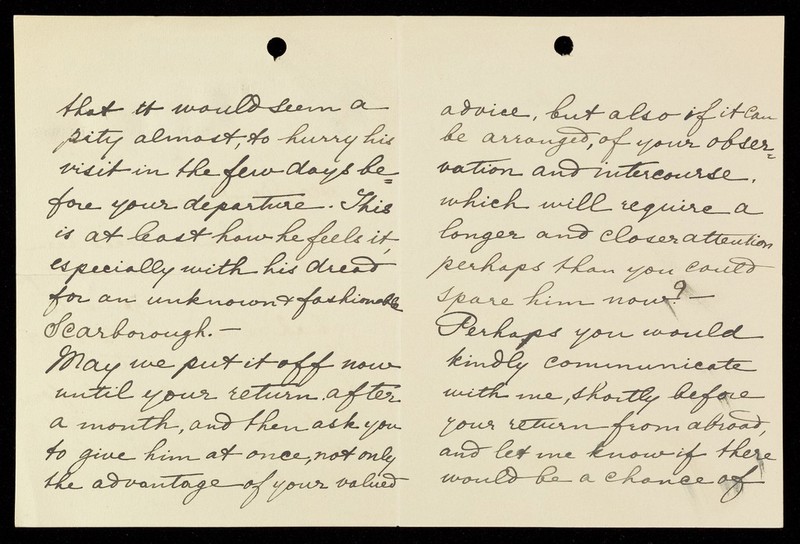 that it would seem a
pity almost, to hurry his
visit in the few days be=
fore your departure. This
is at least how he feels it,
especially with his dread
for an unknown & fashionable
Scarborough.—
May we put it off now
until your return after
a month, and then ask you
to give him at once, not only
the advantage of your valued
advice, but also if it can
be arranged, of your obser=
vation and intercourse,
which will require a
longer and closer attention
perhaps than you could
spare him now?—
Perhaps you would
kindly communicate
with me, shortly before
your return from abroad,
and let me know if there
would be a chance of